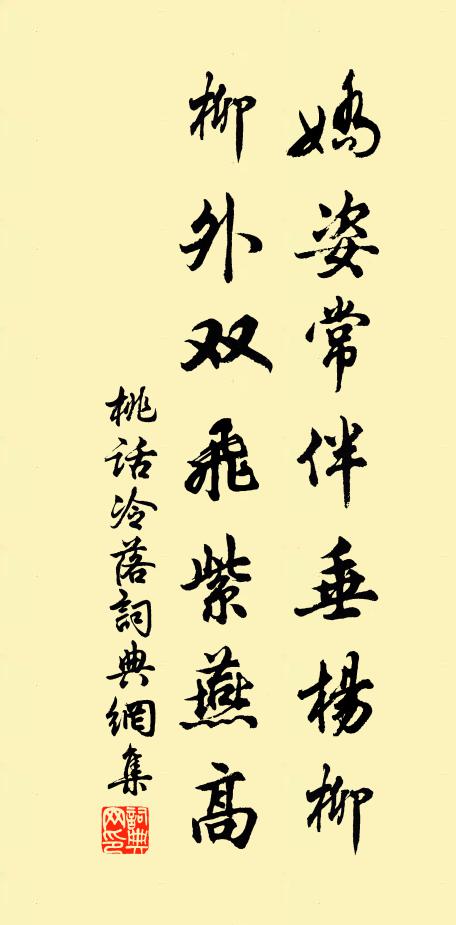 嬌姿常伴垂楊柳
柳外双飛紫燕高
桃话冷落詞典網集
詞典网印